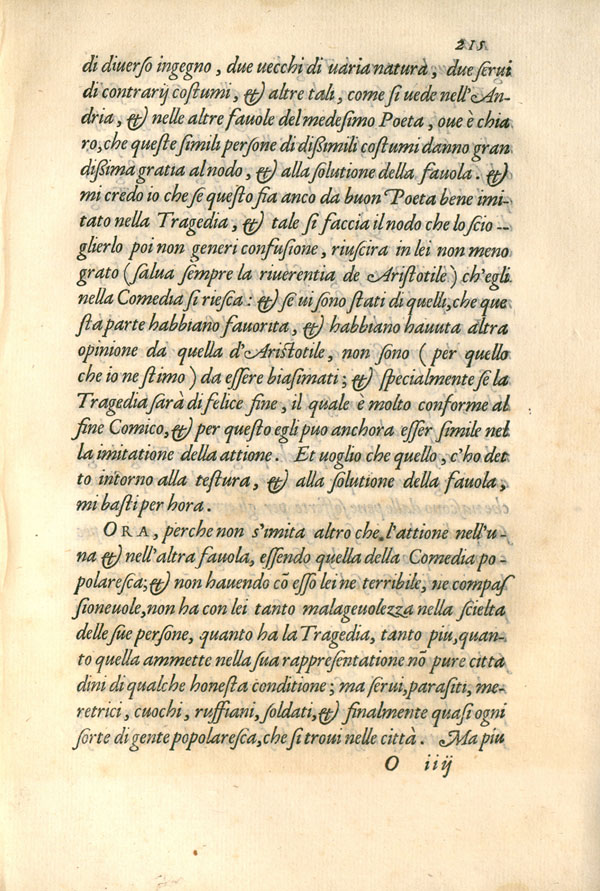 215
di diuerso ingegno, due uecchi di uaria natura, due serui
di contrarij costumi, & altre tali, come si uede nell'An-
dria, & nelle altre fauole del medesimo Poeta, oue è chia
ro, che queste simili persone di dißimili costumi danno gran
dißima gratia al nodo, & alla solutione della fauola. &
mi credo io che se questo fia anco da buon Poeta bene imi
tato nella Tragedia, & tale si faccia il nodo che lo scio-
glierlo poi non generi confusione, riuscira in lei non meno
grato (salua sempre la riuerentia de Aristotile) ch'egli
nella Comedia si riesca: & se ui sono stati di quelli, che que
sta parte habbiano fauorita, & habbiano hauuta altra
opinione da quella d'Aristotile, non sono (per quello
che io ne stimo) da essere biasimati; & specialmente se la
Tragedia sarà di felice fine, il quale è molto conforme al
fine Comico, & per questo egli puo anchora esser simile nel
la imitatione della attione. Et uoglio che quello, c'ho det
to intorno alla testura, & alla solutione della fauola,
mi basti per hora.
ORA, perche non s'imita altro che l'attione nell'u-
na & nell'altra fauola, essendo quella della Comedia po-
polaresca; & non hauendo cõ esso lei ne terribile, ne compas
sioneuole, non ha con lei tanto malageuolezza nella scielta
delle sue persone, quanto ha la Tragedia, tanto piu, quan-
to quella ammette nella sua rappresentatione nõ pure citta
dini di qualche honesta conditione; ma serui, parasiti, me-
retrici, cuochi, ruffiani, soldati, & finalmente quasi ogni
sorte di gente popolaresca, che si troui nelle città. Ma piu
O iiij